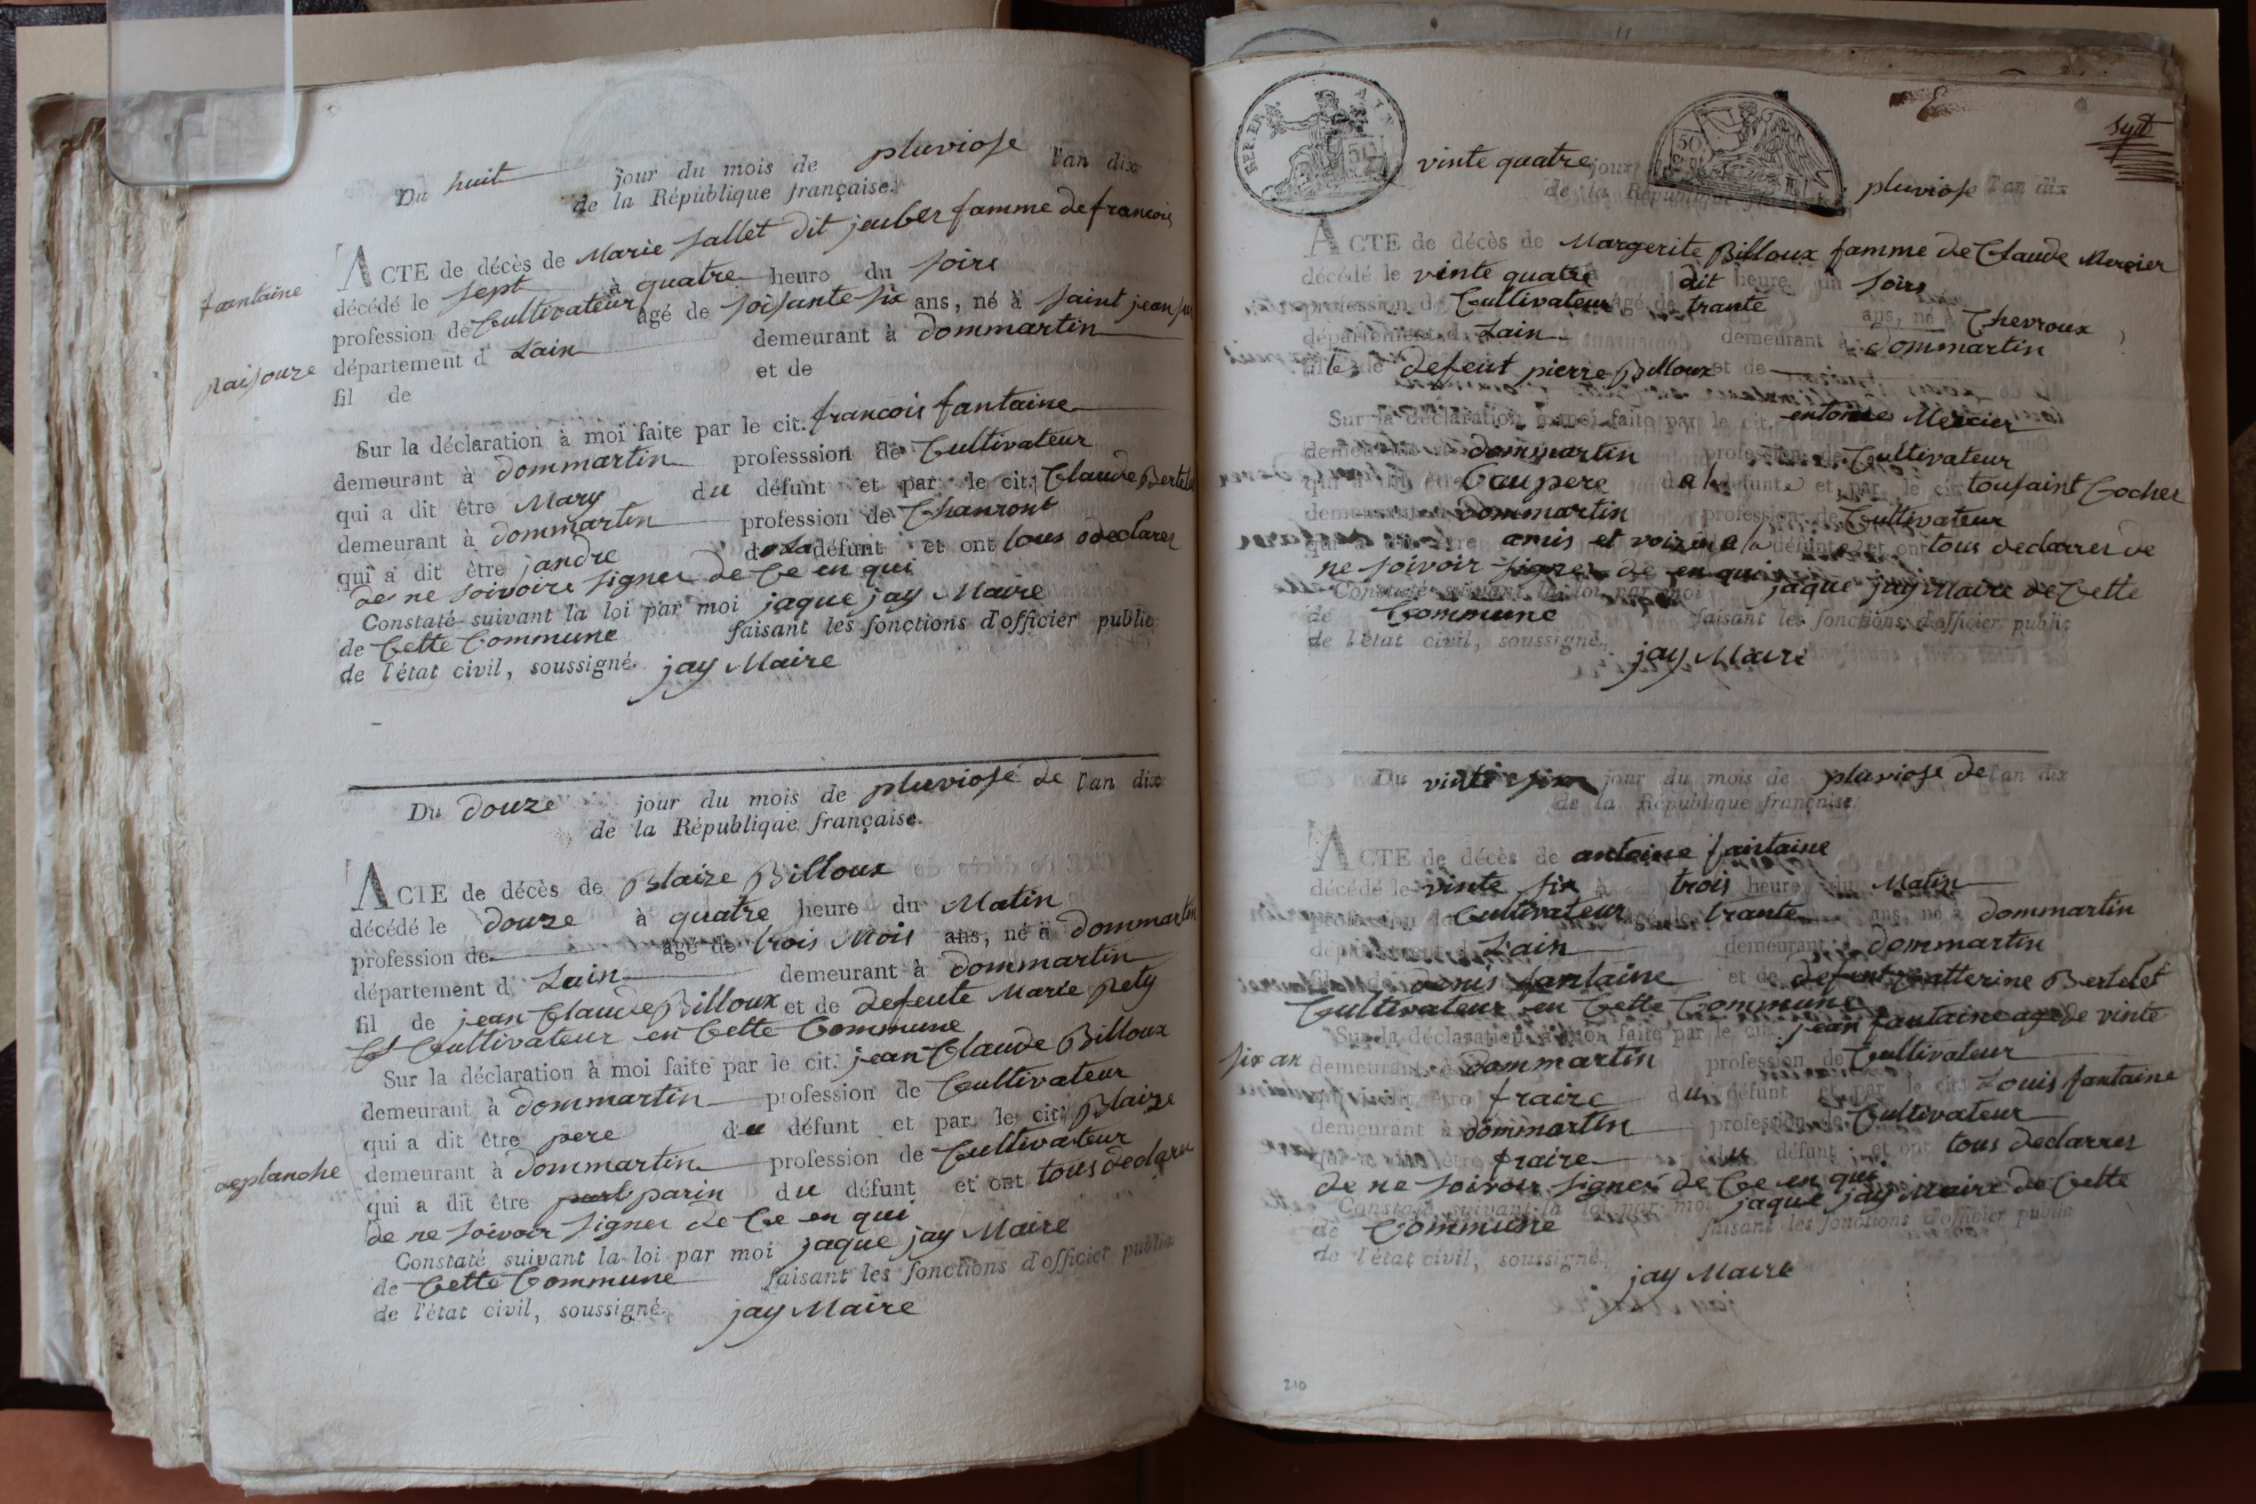 Du huit jour du mois de pluviose l'an dix
de la République française.
ACTE de décès de Marie sallet dit jauber famme de francois
décédé le sept à quatre heure du soire
fantaine
profession de Cultivateur agé de soisante six ans, né à saint jean sur
raisouze
département d' Lain demeurant à dommartin
fil de et de
Sur la déclaration à moi faite par le cit. francois fantaine
demeurant à dommartin professsion de Cultivateur
qui a dit être Mary du défunt et par le cit. Claude
demeurant à dommartin profession de
qui a dit être jandre de la défunt et ont tous declarer
de ne soivoire signer de Ce en qui
Constaté suivant la loi par moi jaque jay Maire
de Cette Commune faisant les fonctions d'officier public
de l'état civil, soussigné. jay Maire
Du douze jour du mois de pluviose de l'an dix
de la République française.
ACTE de décès de Blaize Billoux
décédé le douze à quatre heure du Matin
profession de agé de trois Mois ans, né à dommartin
département d' Lain demeurant à dommartin
fil de jean Claude Billoux et de defeute Marie pety
Cultivateur en Cette Commune
Sur la déclaration à moi faite par le cit. jean Claude Billoux
demeurant à dommartin profession de Cultivateur
qui a dit être pere du défunt et par le cit. Blaize
deplanche
demeurant à dommartin profession de Cultivateur
qui a dit être parin du défunt et ont tous declaru
de ne soivoir signer de Ce en qui
Constaté suivant la loi par moi jaque jay Maire
de Cette Commune faisant les fonctions d'officier public
de l'état civil, soussigné. jay Maire
sept
vinte quatre jour pluviose l'an dix
de la République
ACTE de décès de Margerite Billoux famme de Claude Mercier
décédé le vinte quatre à dit heure du soire
profession de Cultivateur agé de trante ans, né à Chevroux
département d' Lain demeurant à dommartin
fil le de defeut pierre Billoux et de
Sur la déclaration à moi faite par le cit. entoinne Mercier
demeurant à dommartin profession de Cultivateur
qui a dit être Baupere de la défunte et par le cit. tousaint Cocher
demeurant à dommartin profession de Cultivateur
qui a dit être amis et voizin a la défunte et ont tous declarrer de
ne soivoir signer de en qui
Constaté suivant la loi par moi jaque jay Maire de Cette
de Commune faisant les fonctions d'officier public
de l'état civil, soussigné. jay Maire
Du vinte six jour du mois de pluviose de l'an dix
de la République française.
ACTE de décès de antoine fantaine
décédé le vinte six à trois heure du Matin
profession de Cultivateur agé de trante ans, né à dommartin
département d' Lain demeurant à dommartin
fil de denis fantaine et de defunt Catterine Bertelet
Cultivateur en Cette Commune
Sur la déclaration à moi faite par le cit. jean fantaine age de vinte
six an demeurant à dommartin profession de Cultivateur
qui a dit être fraire du défunt et par le cit. Louis fantaine
demeurant à dommartin profession de Cultivateur
qui a dit être fraire du défunt et ont tous declarrer
de ne soivoir signer de Ce en qui
Constaté suivant la loi par moi jaque jay Maire de Cette
de Commune faisant les fonctions d'officier public
de l'état civil, soussigné. jay Maire
210